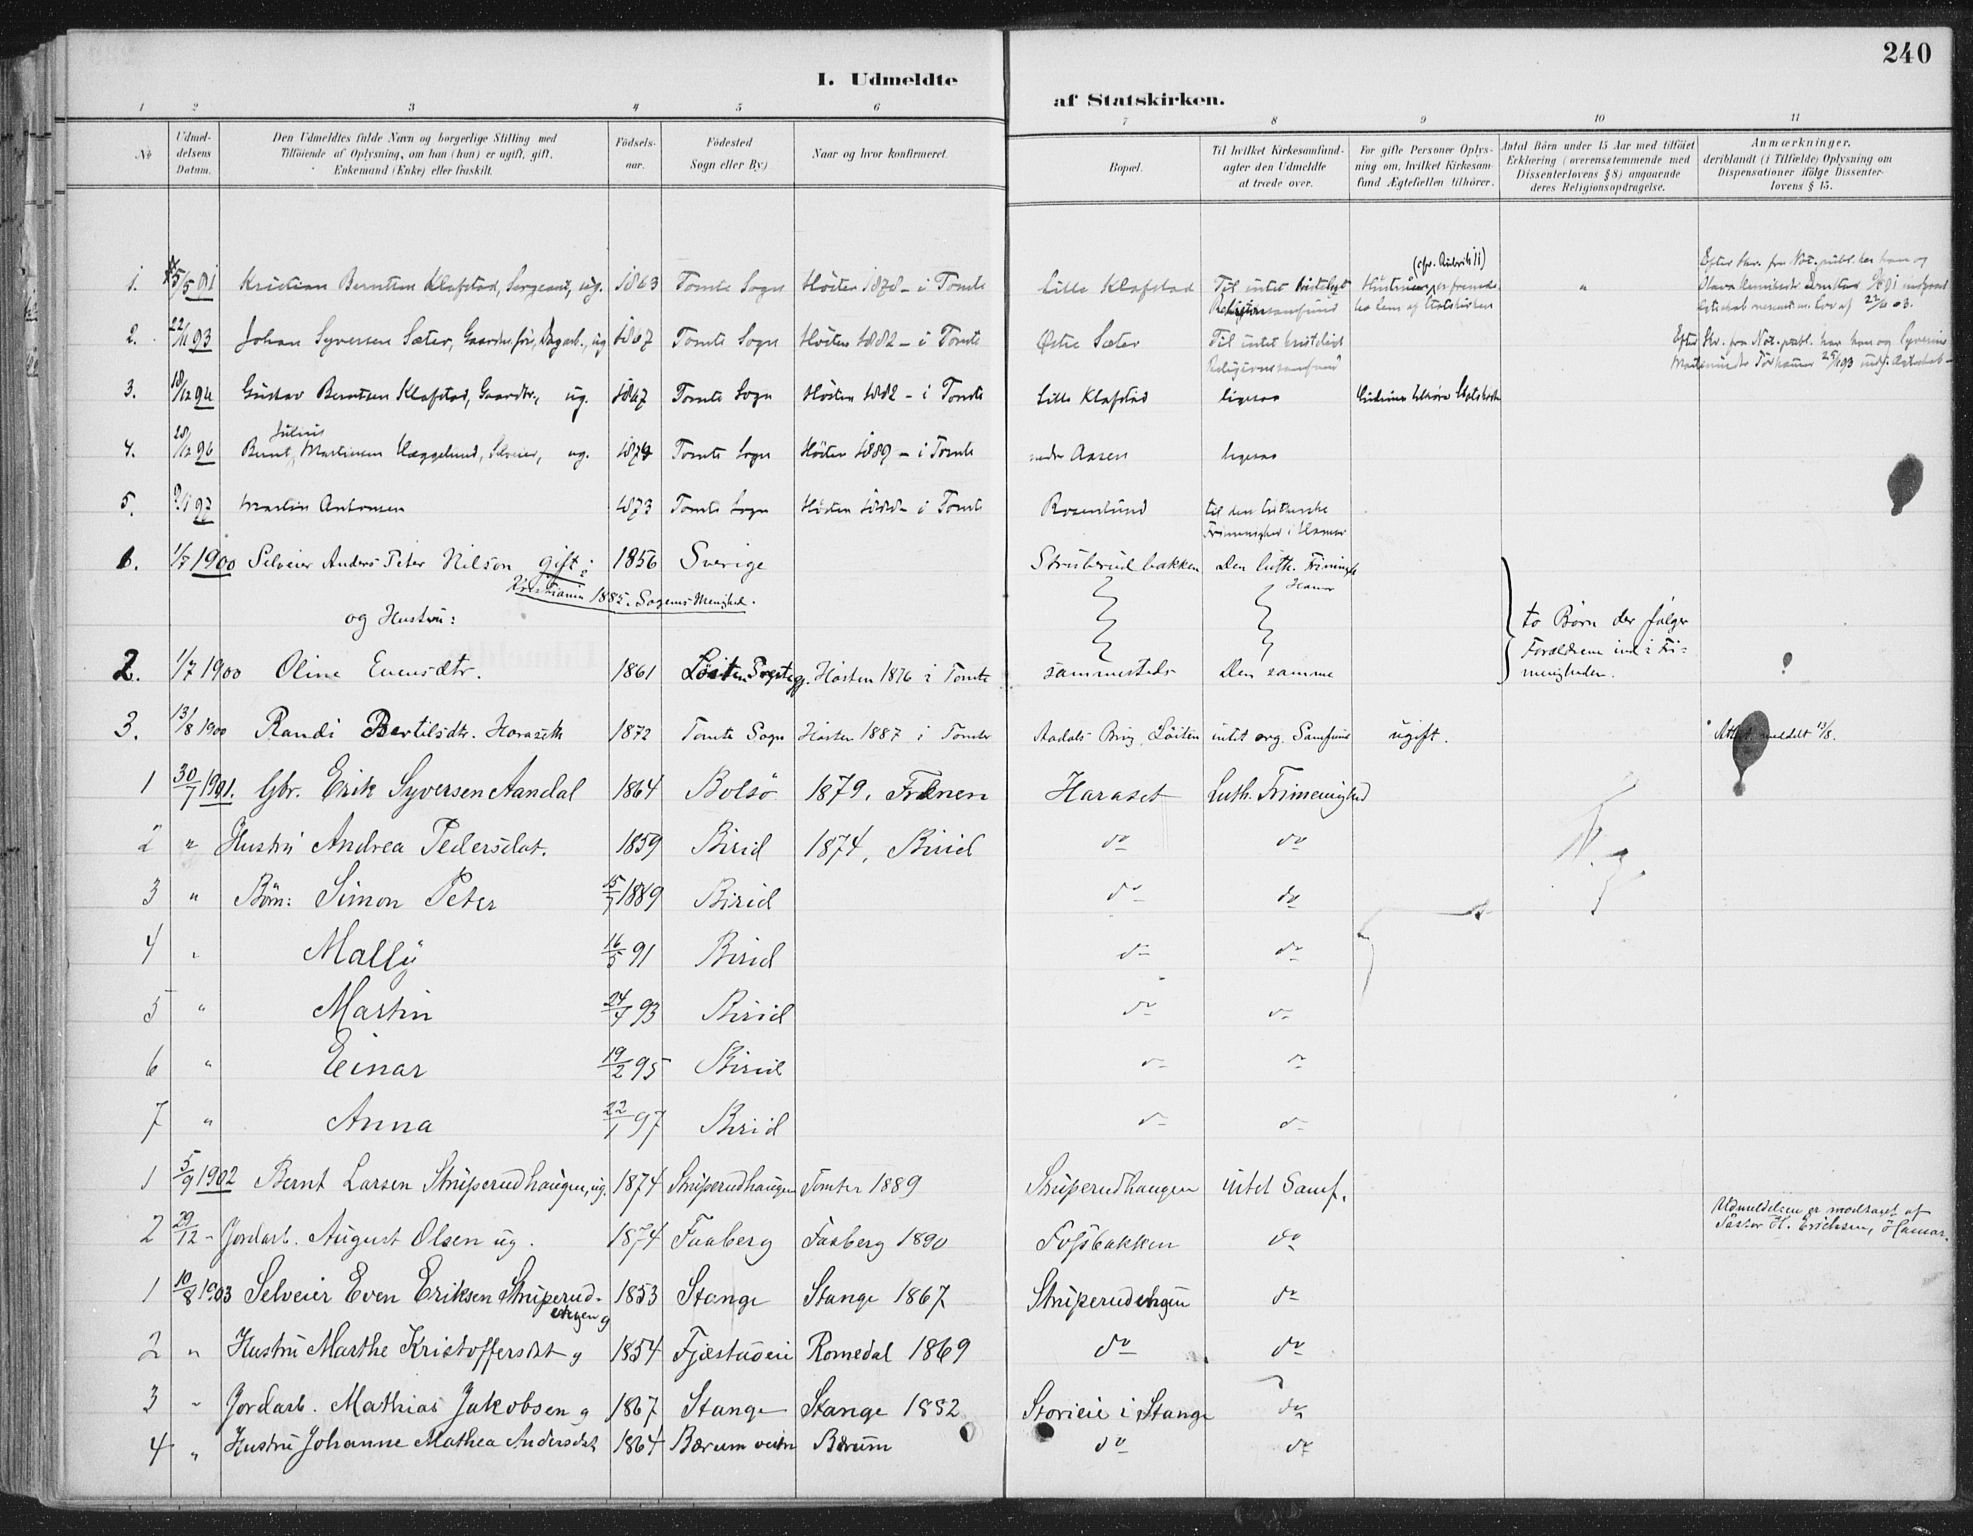 240
I. Udmeldte
af Statskirken.
1 2 3 4 5 6 7 8 9 10 11
No
Udmel-
delsens
Datum.
Den Udmeldtes fulde Navn og borgerlige Stilling med
Tilføiende af Oplysning, om han (hun) er ugift, gift,
Enkemand (Enke) eller fraskilt.
Födsels-
aar.
Födested
Sogn eller By.)
Naar og hvor konfirmeret.
Bopæl.
Til hvilket Kirkesamfund-
agter den Udmeldte
at træde over.
For gifte Personer Oplys-
ning om, hvilket Kirkesam-
fund Ægtefællen tilhörer.
Antal Börn under 15 Aar med tilföiet
Erklæring (overensstemmende med
Dissenterlovens § 8) angaaende
deres Religionsopdragelse.
Anmærkninger,
deriblandt (i Tilfælde) Oplysning om
Dispensationer ifölge Dissenter-
lovens § 15.
1. 5/5 91 Kristian Berntsen Klafstad, Sergeant, ug. 1863 Tomte Sogn Høsten 1878 - i Tomte Lille Klafstad Til intet kristeligt "
Religionssamfund
(cfr. Rubrik 11)
2. 22/11 93 Johan Syversen Sæter, ug 1867 Tomte Sogn Høsten 1882 - i Tomte Østre Sæter Til intet kristeligt
Religionssamfund
3. 18/12 94 Gustav Berntsen Klafstad, Gaardbr., ug. 1867 Tomte Sogn Høsten 1882 - i Tomte Lille Klafstad ligesaa
Julius
4. 28/12 96 Bernt Martinsen Hæggelund, Selveier, ug. 1874 Tomte Sogn Høsten 1889 - i Tomte nedre Aasen ligesaa
5. 97 Martin Antonsen 1873 Tomte Sogn Høsten 1888 - i Tomte Rosenlund til den lutherske
Frimenighed i Hamar
1. 1/7 1900 Selveier Anders Peter Nilson gift i 1856 Sverige Struberud bakken Den luth. Frimenigh
Kristiania 1885. Sagenes Menighed. Hamar
og Hustru:
to Børn der følger
Forældrene ind i Fri-
menigheden.
2. 1/7 1900 Oline Evensdtr. 1861 Løiten Høsten 1876 i Tomte sammesteds Den samme
3. 13/8 1900 Randi Bertilsdtr. Haraseth 1872 Tomte Sogn Høsten 1887 i Tomte Aadals Brug, Løiten intet org. Samfund ugift. Attest meddelt 13/8.
1 30/7 1901. Gbr. Erik Syversen Aandal 1864 Bolsø 1879, Frænen Haraset Luth. Frimenighed
2 " Hustru Andrea Pedersdat. 1859 Birid 1874, Birid do do
3 " Børn: Simon Peter 15/7 1889 Birid do do
4 " Mally 16/5 91 Birid do do
5 " Martin 24/7 93 Birid do do
6 " Einar 19/2 95 Birid do do
7 " Anna 22/1 97 Birid do do
1 5/9 1902 Bernt Larsen Struperudhaugen, ug. 1874 Struperudhaugen Tomter 1889 Struperudhaugen intet Samf.
Udmeldelsen er modtaget af
Pastor H. Erichsen, Hamar.
2 29/12 - Jordarb. August Olsen ug. 1874 Faaberg Faaberg 1890 Fossbakken do
1 10/8 1903 Selveier Even Eriksen Struperud- 1853 Stange Stange 1867 Struperudengen do
engen g
2 " Hustru Marthe Kristoffersdat g 1854 Fjæstadeie Romedal 1869 do do
3 " Jordarb. Mathias Jakobsen g 1867 Stange Stange 1882 Storieie i Stange do
4 " Hustru Johanne Mathea Andersdat 1864 Bærum Bærum do do